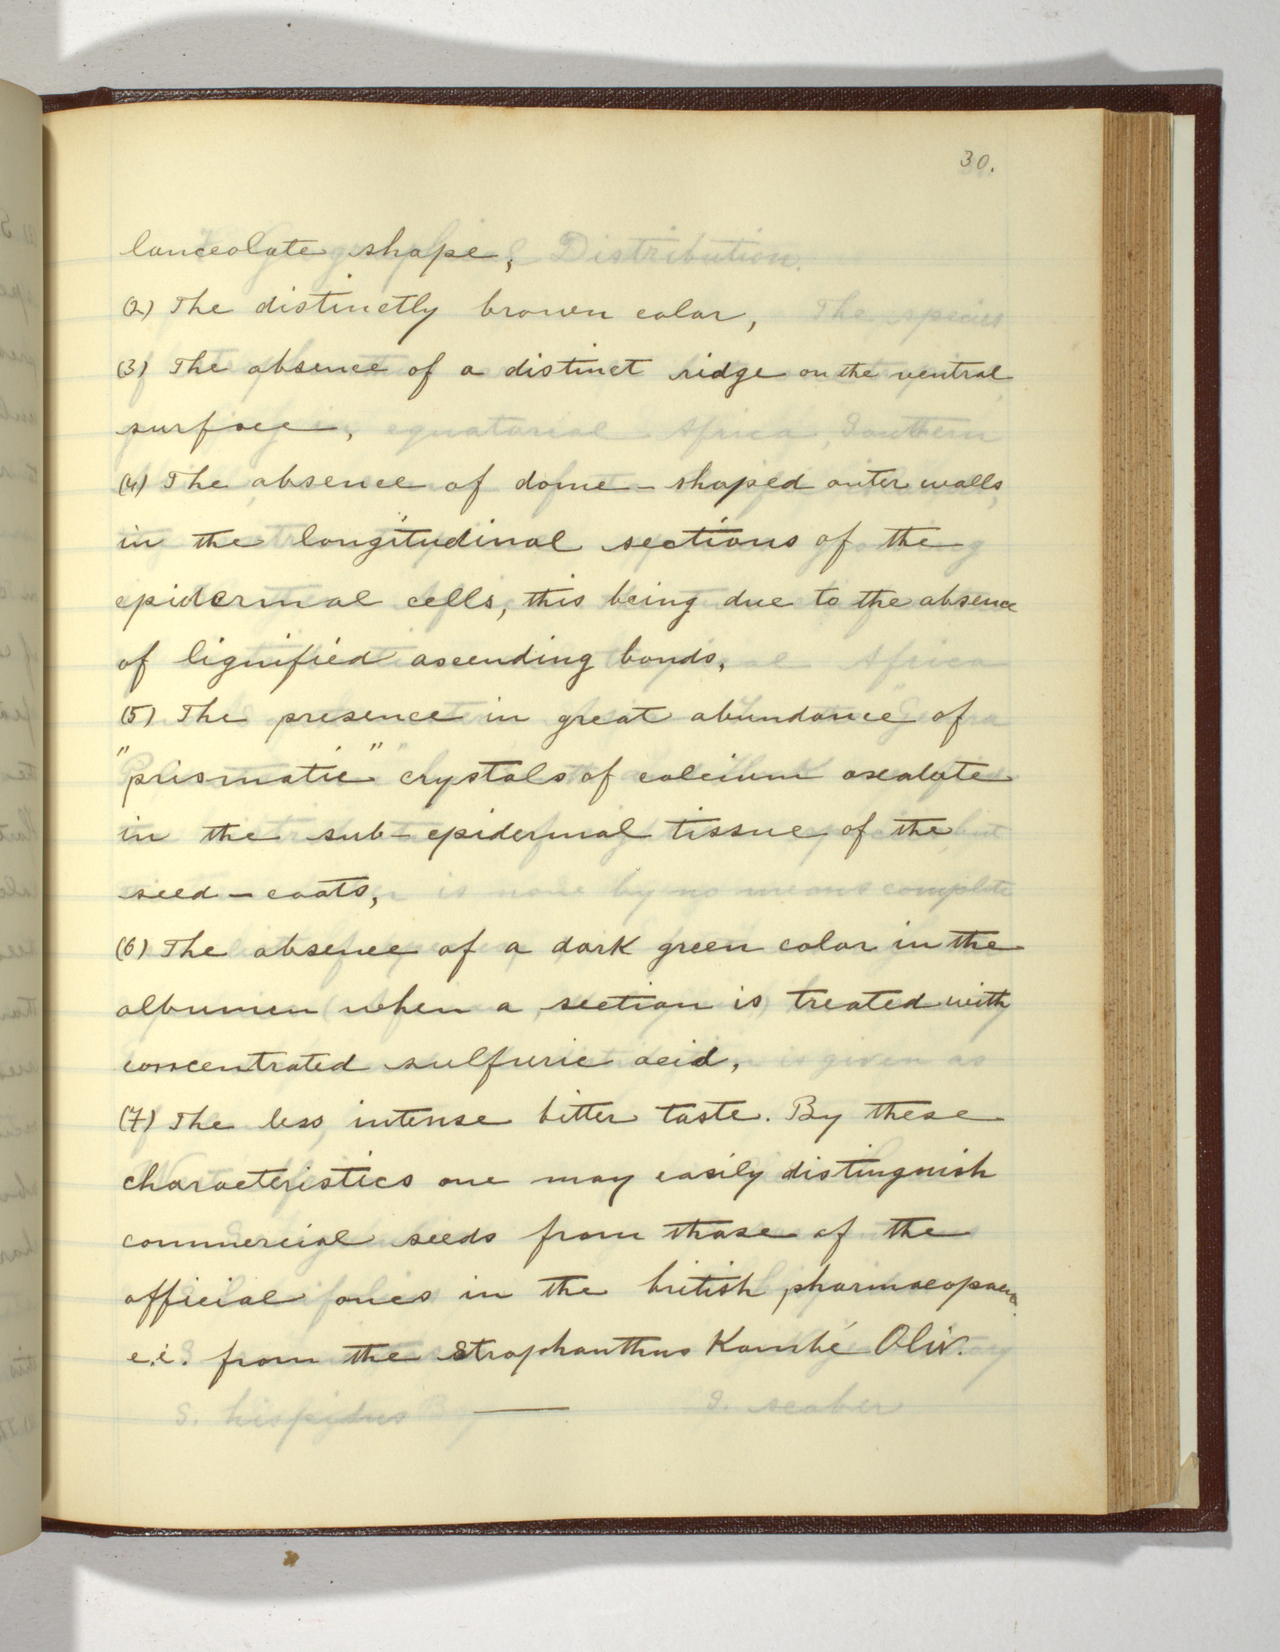 30.
lanceolate shape,
(2) The distinctly brown color,
(3) The absence of a distinct ridge on the ventral
surface,
(4) The absence of dome-shaped outer walls,
in the longitudinal sections of the
epidermal cells, this being due to the absence
of lignified ascending bands,
(5) The presence in great abundance of
"prismatic" crystals of calcium oxalate
in the sub-epidermal tissue of the
seed-coats,
(6) The absence of a dark green color in the
albumen when a section is treated with
concentrated sulfuric acid,
(7) The less intense bitter taste. By these
characteristics one may easily distinguish
commercial seeds from those of the
official ones in the british pharmacopaea.
e.i. from the Strophanthus Kombé Oliv.